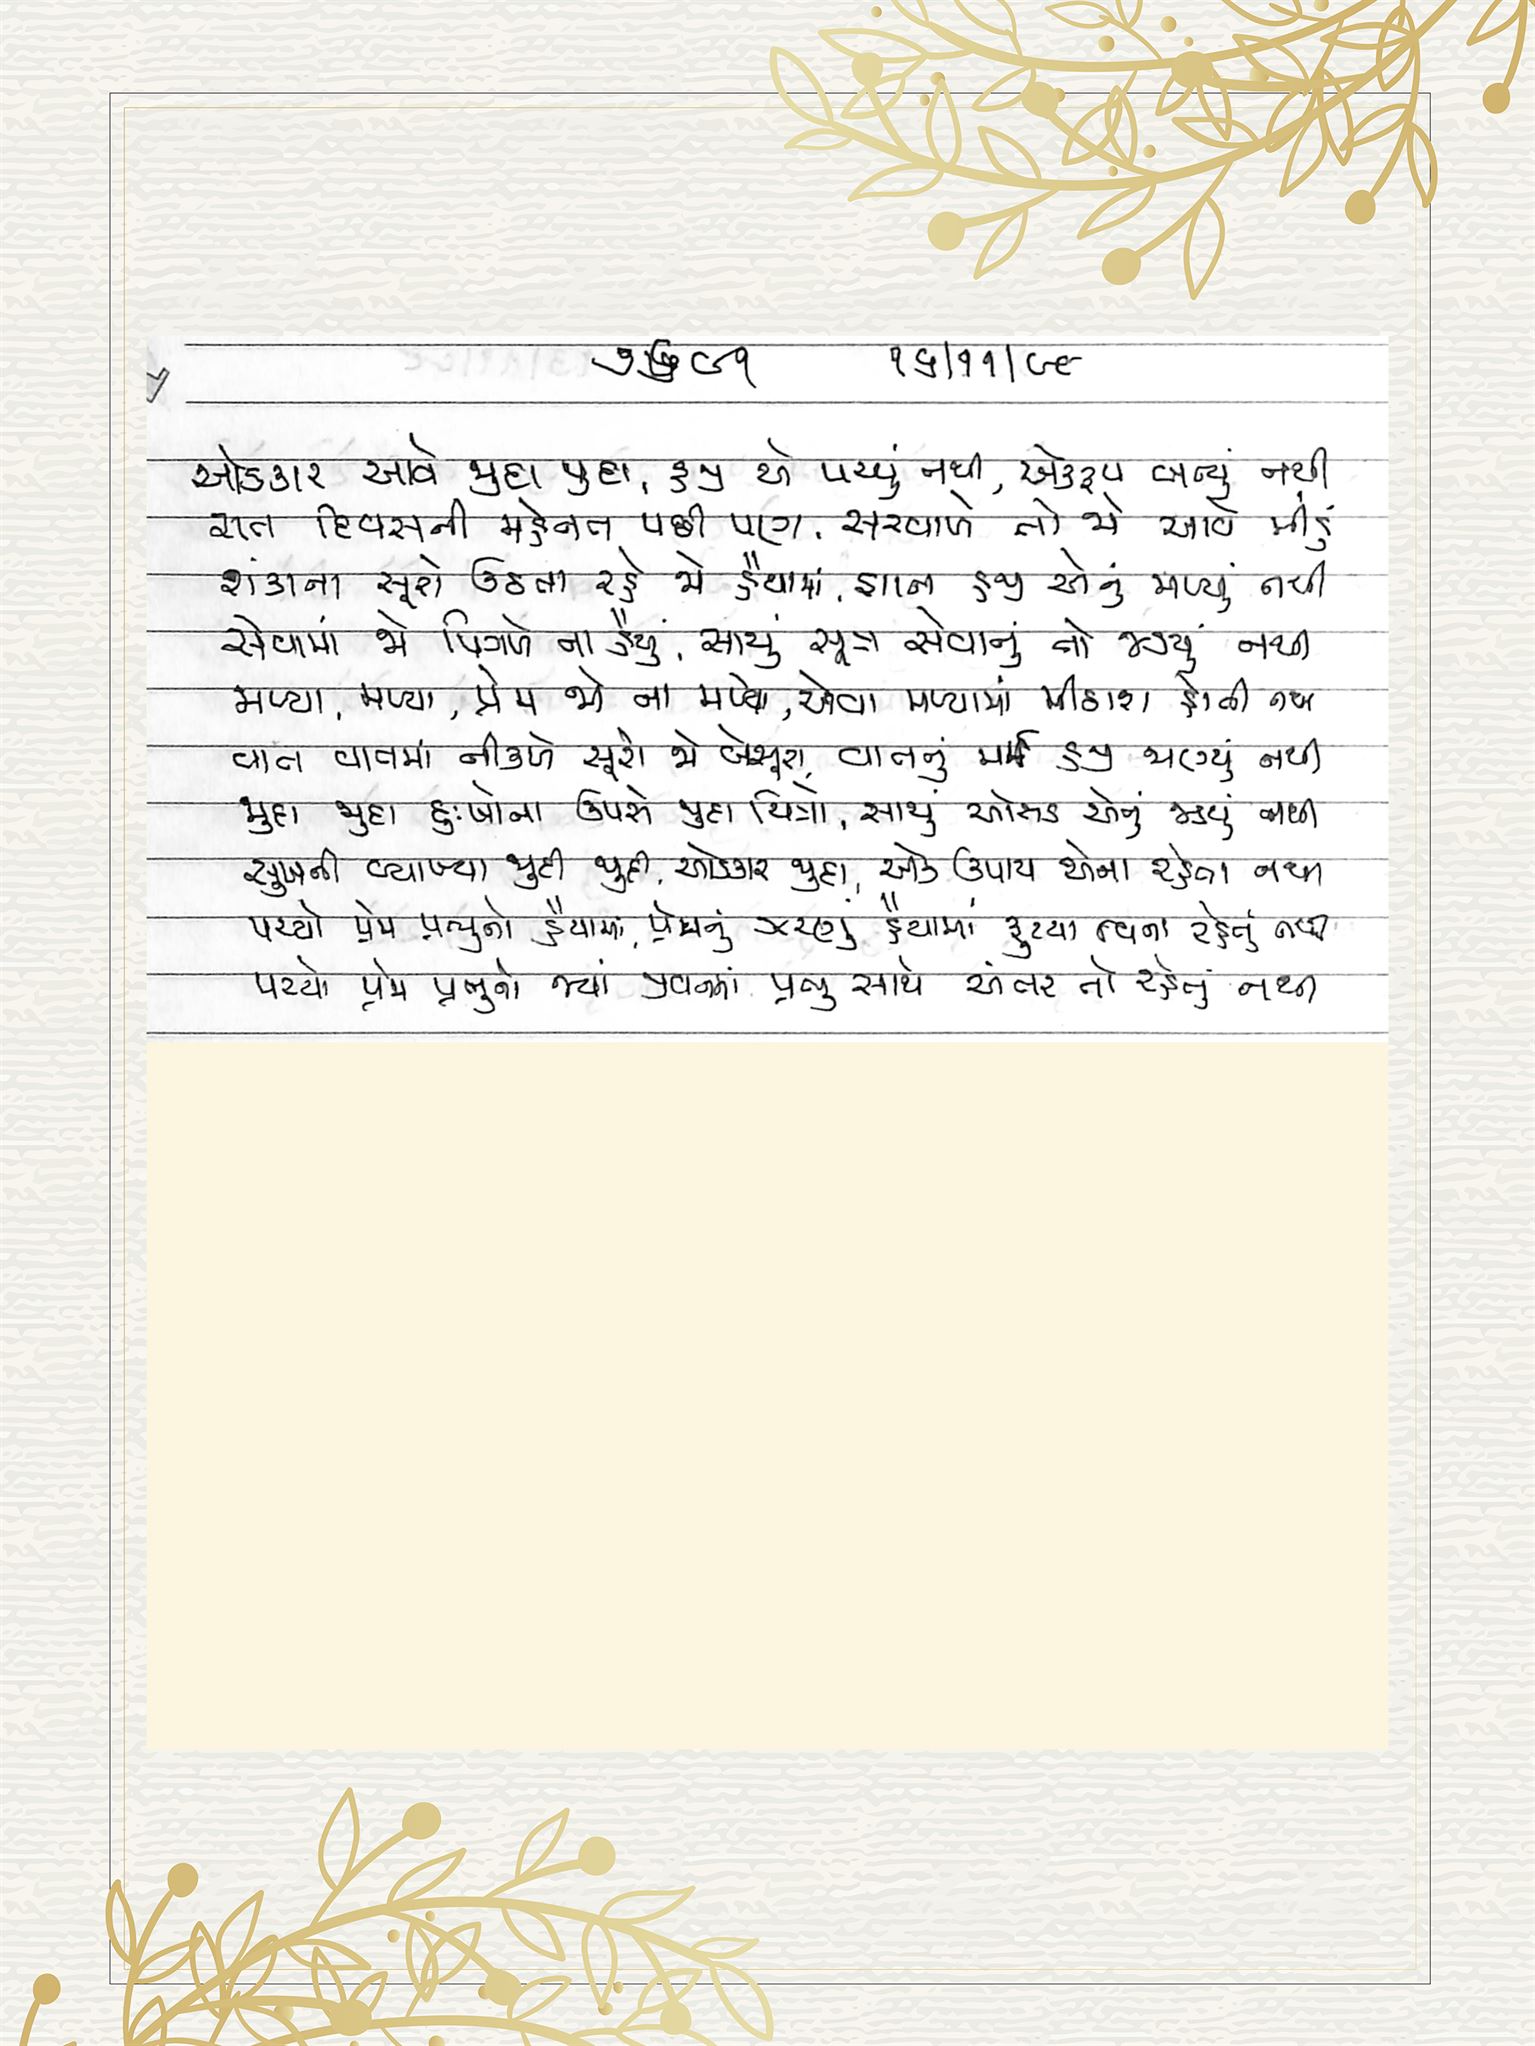 ૭૬૯૧ ૧૬/૧૧/૯૮
ઓડકાર આવે જુદા જુદા, હજી એ પચ્યું નથી, એકરૂપ બન્યું નથી
રાત દિવસની મહેનત પછી પણ, સરવાળે તો જો આવે મીંડું
શંકાના સૂરો ઉઠતા રહે જો હૈયામાં, જ્ઞાન હજી એનું મળ્યું નથી
સેવામાં જો પિગળે ના હૈયું, સાચું સૂત્ર સેવાનું તો જડયું નથી
મળ્યા, મળ્યા, પ્રેમ જો ના મળ્યો, એવા મળ્યામાં મીઠાશ હોતી નથી
વાત વાતમાં નીકળે સૂરો જો બેસૂરા, વાતનું મર્મ હજી જાણ્યું નથી
જુદા જુદા દુઃખોના ઉપસે જુદા ચિત્રો, સાચું ઓસડ એનું જડયું નથી
સુખની વ્યાખ્યા જુદી જુદી, ઓડકાર જુદા, એક ઉપાય એના રહેતા નથી
પચ્યો પ્રેમ પ્રભુનો હૈયામાં, પ્રેમનું ઝરણું હૈયામાં ફુટયા વિના રહેતું નથી
પચ્યો પ્રેમ પ્રભુનો જ્યાં જીવનમાં પ્રભુ સાથે અંતર તો રહેતું નથી